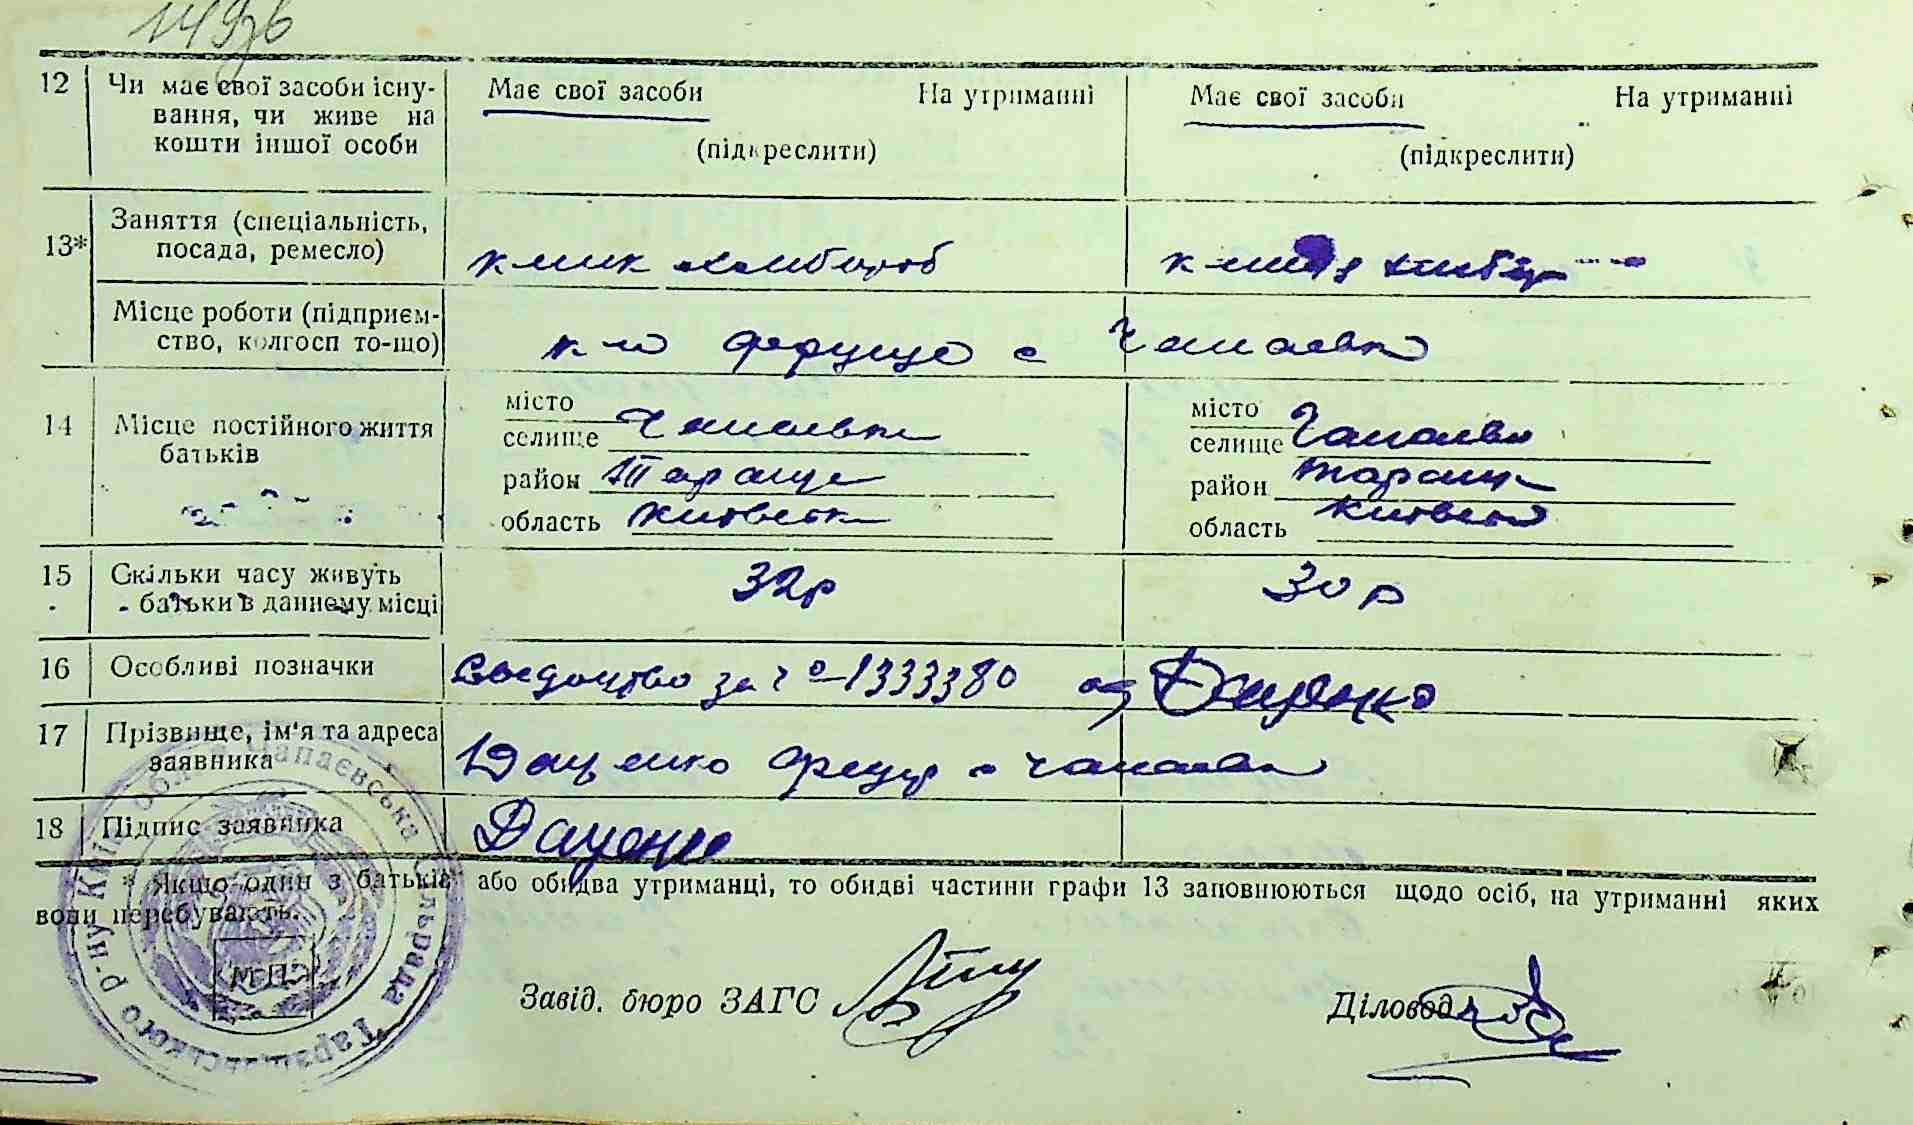 12 Чи має свої засоби існу-
вання, чи живе на
кошти іншої особи
Має свої засоби На утриманні
(підкреслити)
Має свої засоби На утриманні
(підкреслити)
13* Заняття (спеціальність,
посада, ремесло)
Місце роботи (підприєм-
ство, колгосп то-що)
с Чапаєвка
14 Місце постійного життя
батьків
місто
селище Чапаєвка
район Тараща
область Київська
місто
селище Чапаєвка
район Тараща
область Київська
15 Скільки часу живуть
батьки в данному місці
32р
30р
16 Особливі позначки
за №-1333380 Даценко
17 Прізвище, ім'я та адреса
заявника
Даценко с Чапаєвка
18 Підпис заявника
Даценко
* Якщо один з батьків або обидва утриманці, то обидві частини графи 13 заповнюються щодо осіб, на утриманні яких
вони перебувають.
М.П.
Завід. бюро ЗАГС
Діловод
Чапаєвська сільрада Таращанського р-ну Київ. обл.